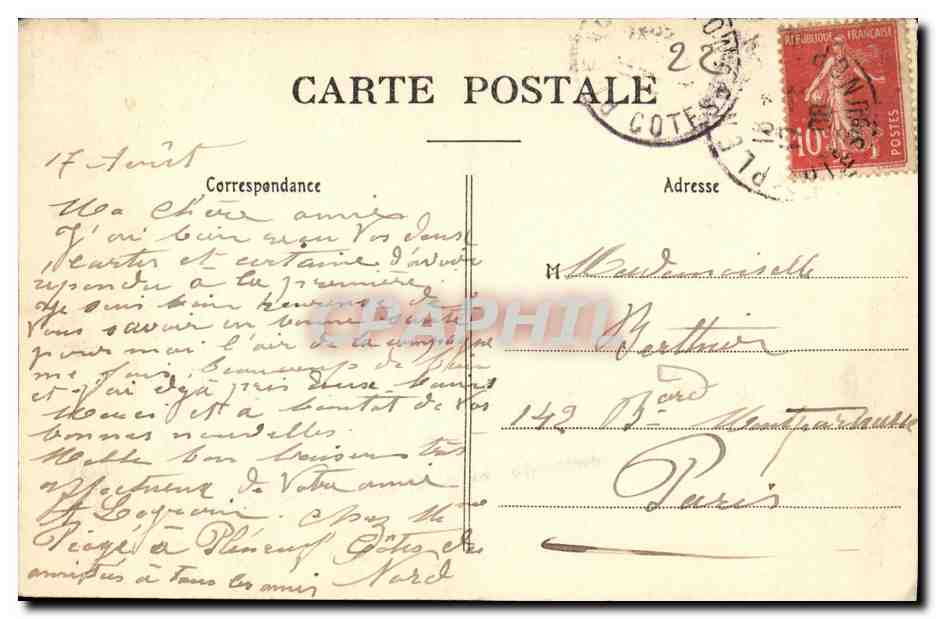 CARTE POSTALE
22
COTES
REPUBLIQUE FRANÇAISE
10
POSTES
17 Août
Correspondance
Ma chère amie
J'ai bien reçu vos deux
cartes et certaine d'avoir
répondu à la première
Je suis bien heureuse de
vous savoir en bonne santé
pour moi l'air de la campagne
me fais beaucoup de bien
et j'ai déjà pris deux bains
Merci et a bientot de vos
bonnes nouvelles.
Mille bon baisers très
affectueux de votre amie
Chez Mme
à Pléneuf Côtes du
Nord
amitiés à tous les amis
Adresse
M Mademoiselle
Berthier
142 Bard Montparnasse
Paris
CPAPHIL